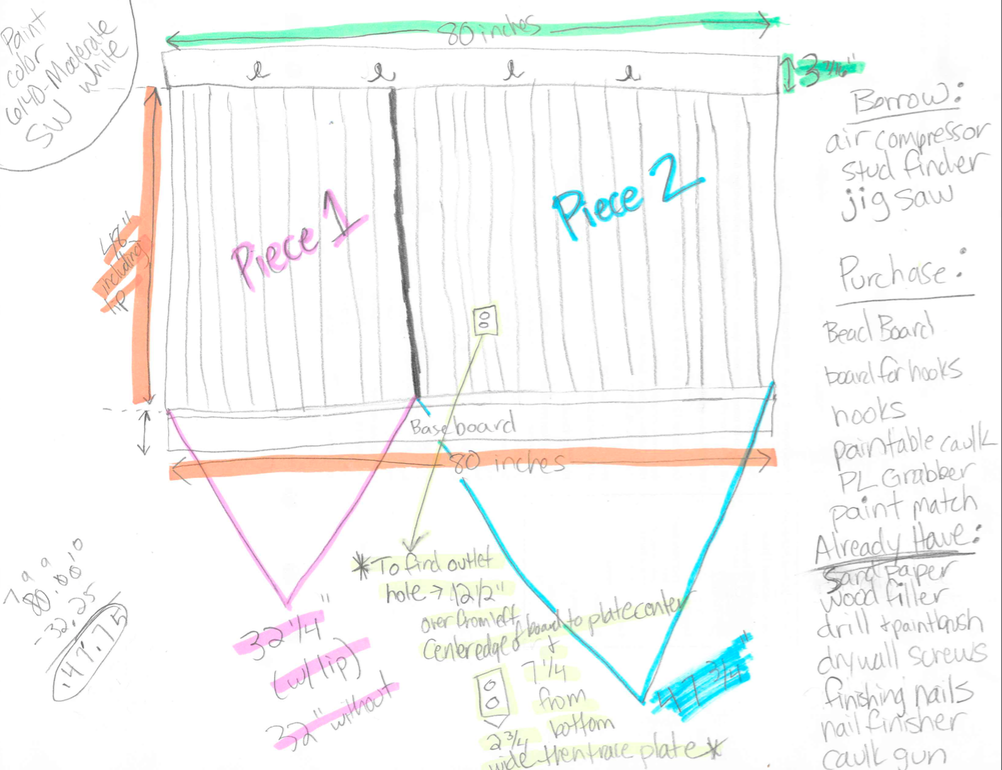 Paint
color
6140-Moderate
SW White
80 inches
3
48"
including
lip
Piece 1
Piece 2
Baseboard
80 inches
80.00
-32.25
47.75
32 1/4"
(w/ lip)
32" without
*To find outlet
hole → 12 1/2"
over from left
center edge of board to plate center
+
7 1/4
from
bottom
2 3/4
wide then trace plate*
47 3/4"
Borrow:
air compressor
stud finder
jig saw
Purchase:
Bead Board
board for hooks
hooks
paintable caulk
PL Grabber
paint match
Already Have:
sand paper
wood filler
drill + paintbrush
drywall screws
finishing nails
nail finisher
caulk gun